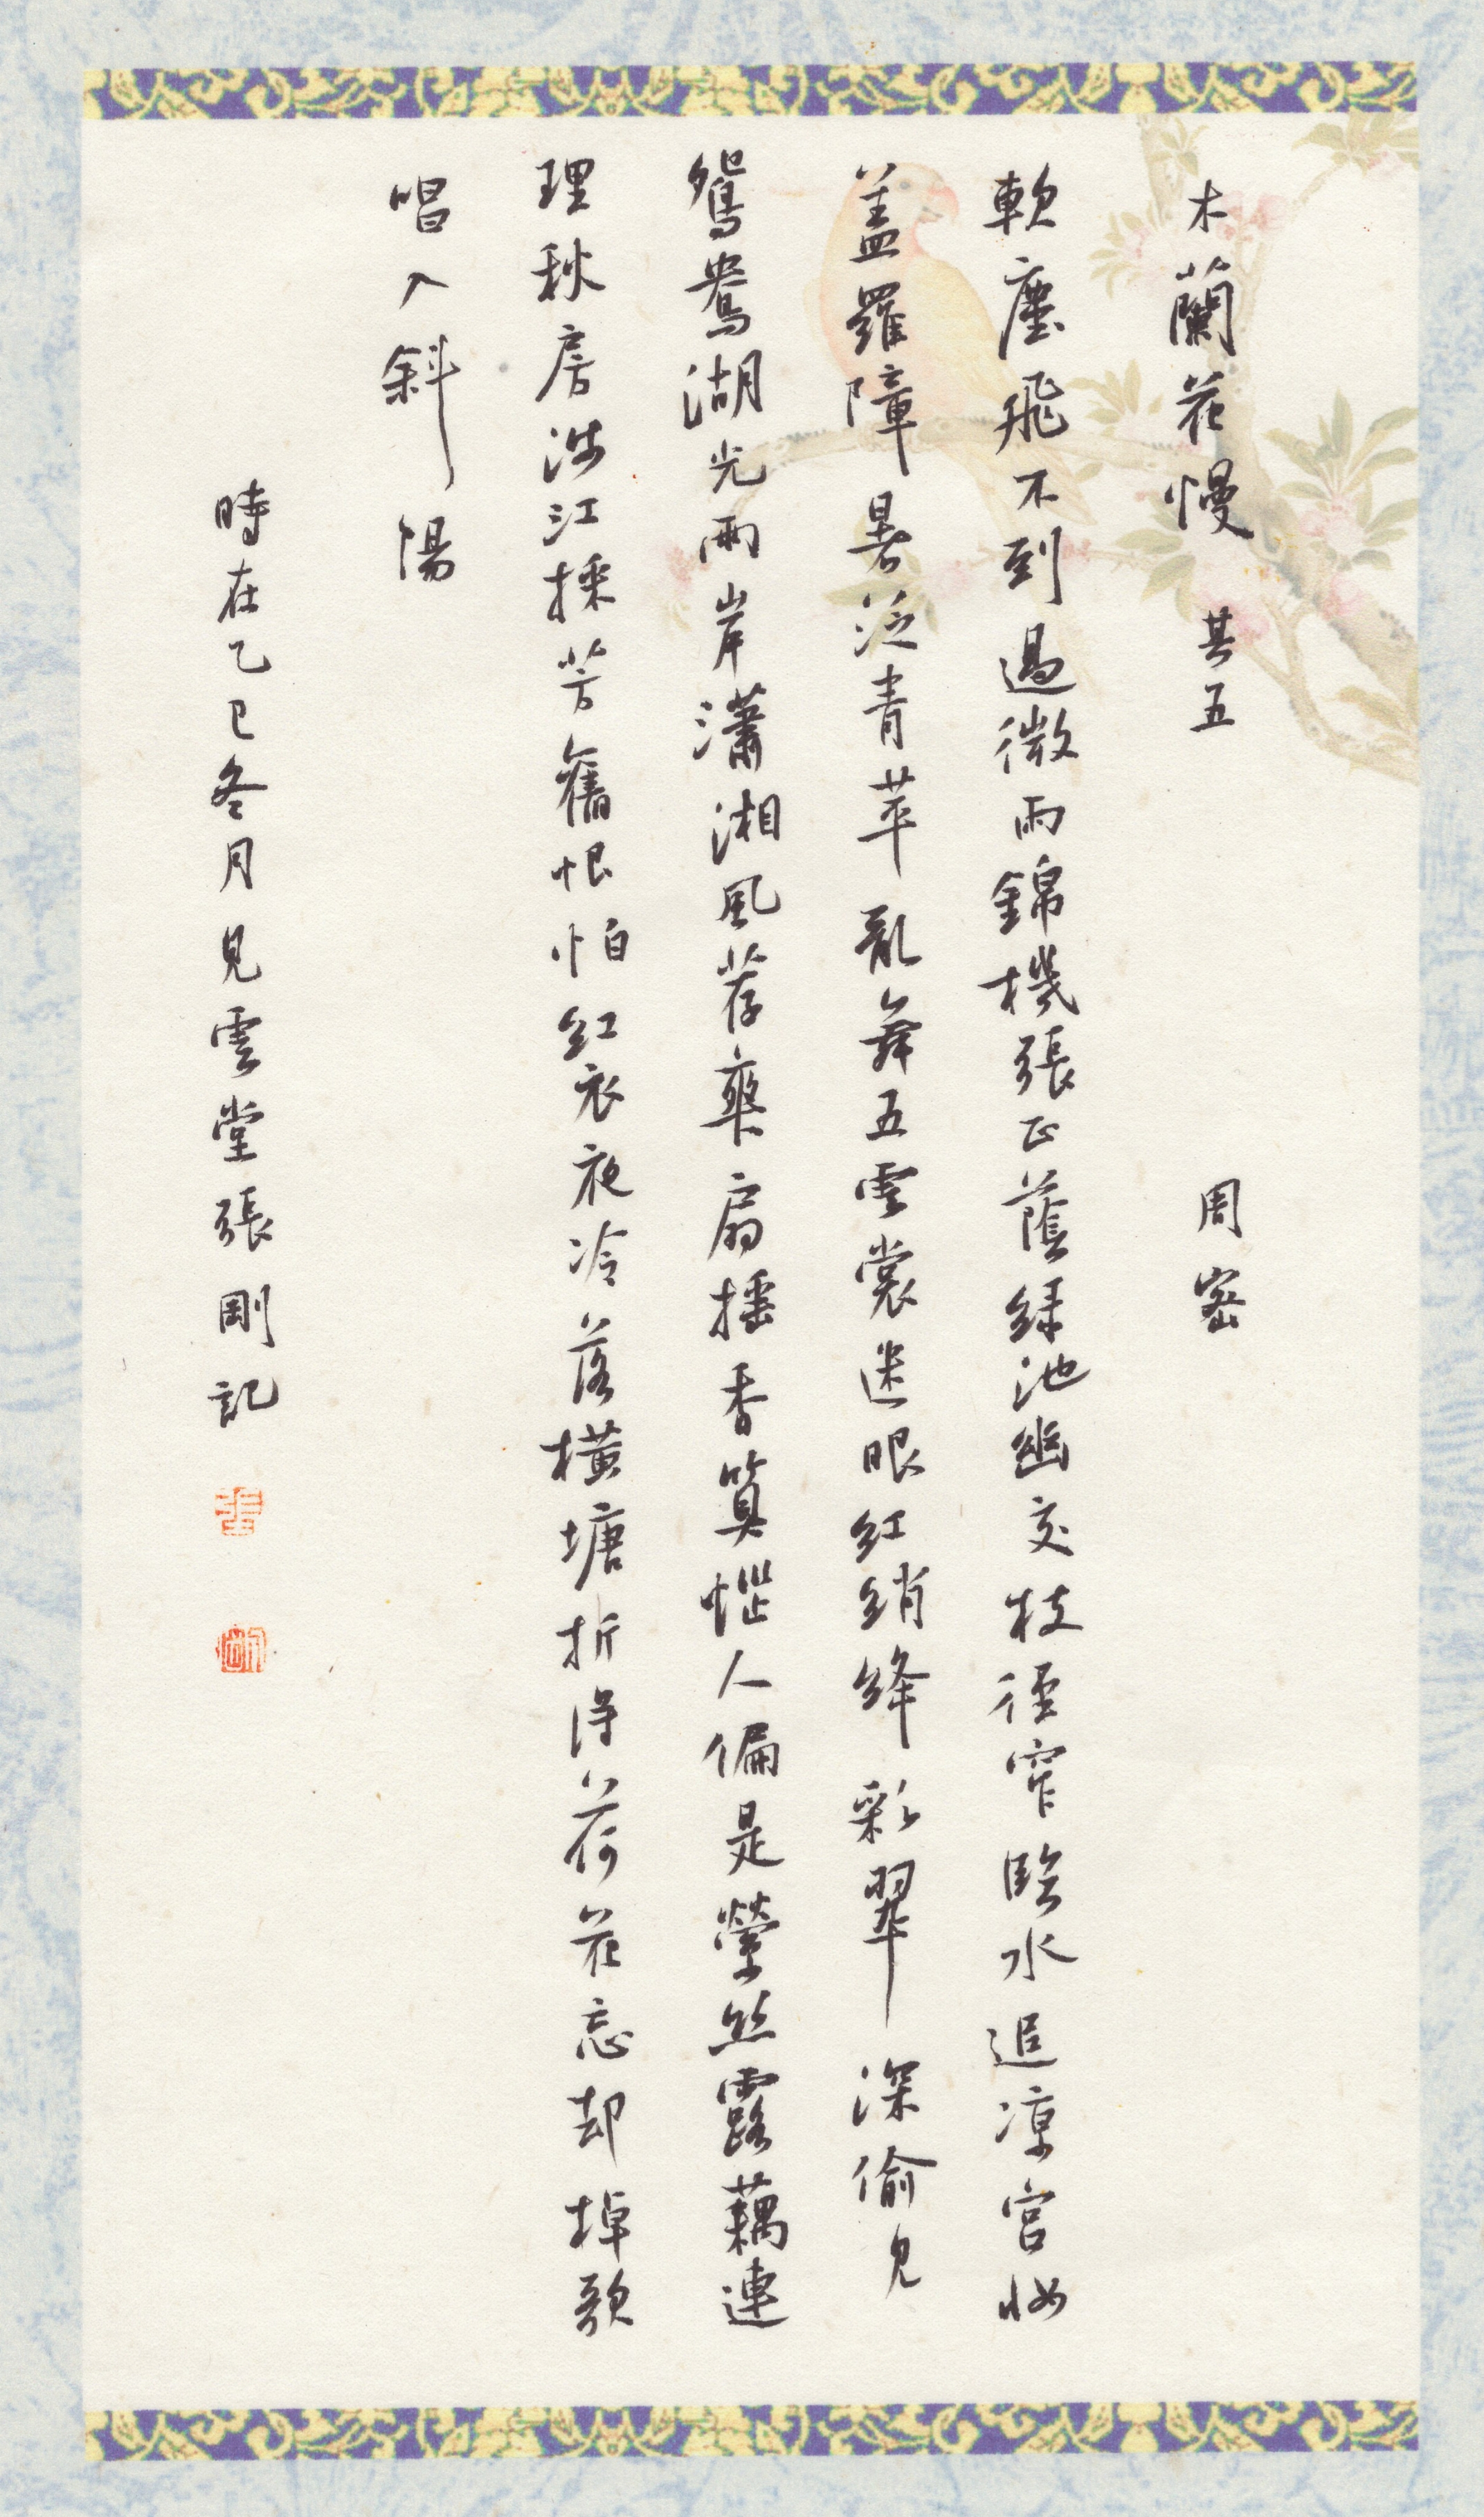 木蘭花慢 其五 周密
軟塵飛不到過微雨錦機張正蔭綠池幽交枝徑窄臨水追涼宮妝
蓋羅障暑泛青苹亂舞五雲裳迷眼紅綃絳彩翠深偷見
鴛鴦湖光兩岸瀟湘風荐爽扇搖香算惱人偏是縈絲露藕連
理秋房涉江採芳舊恨怕紅衣夜冷落橫塘折得荷花忘却棹歌
唱入斜陽
時在乙巳冬月見雲堂張剛記